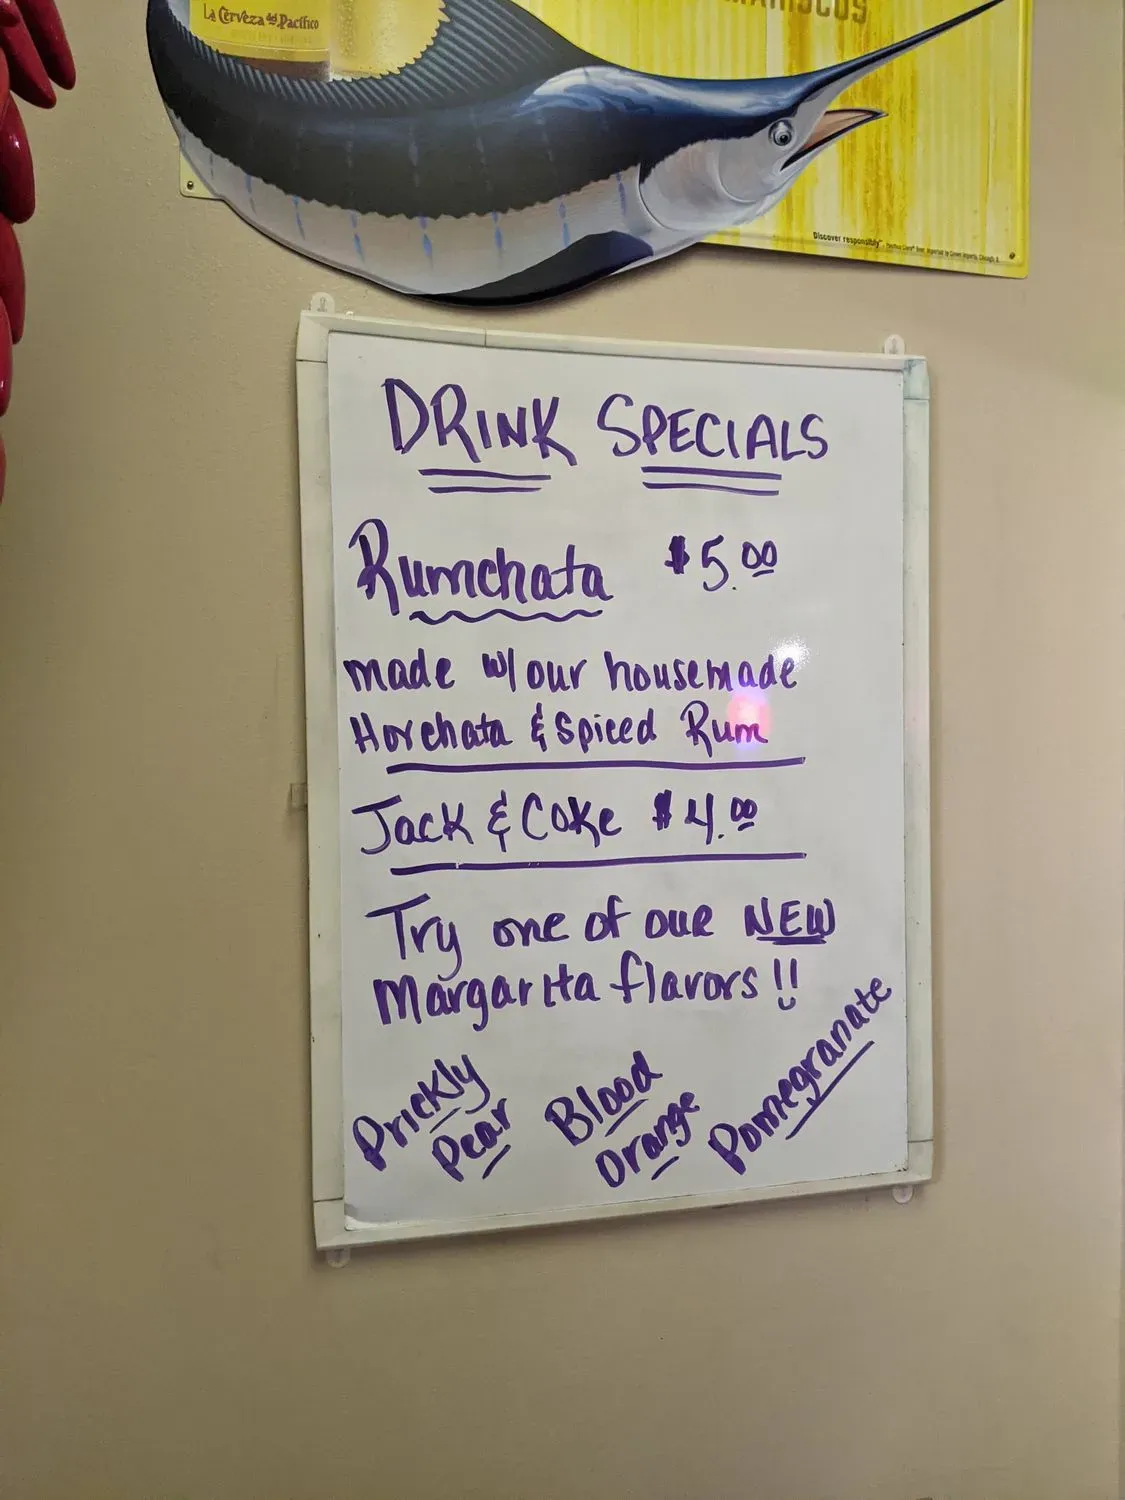 La Cerveza del Pacífico
MARISCOS
Discover responsibly™.
DRINK SPECIALS
Rumchata $5.00
made w/ our housemade
Horchata & Spiced Rum
Jack & Coke $4.00
Try one of our NEW
Margarita flavors!!
Prickly
Pear
Blood
Orange
Pomegranate